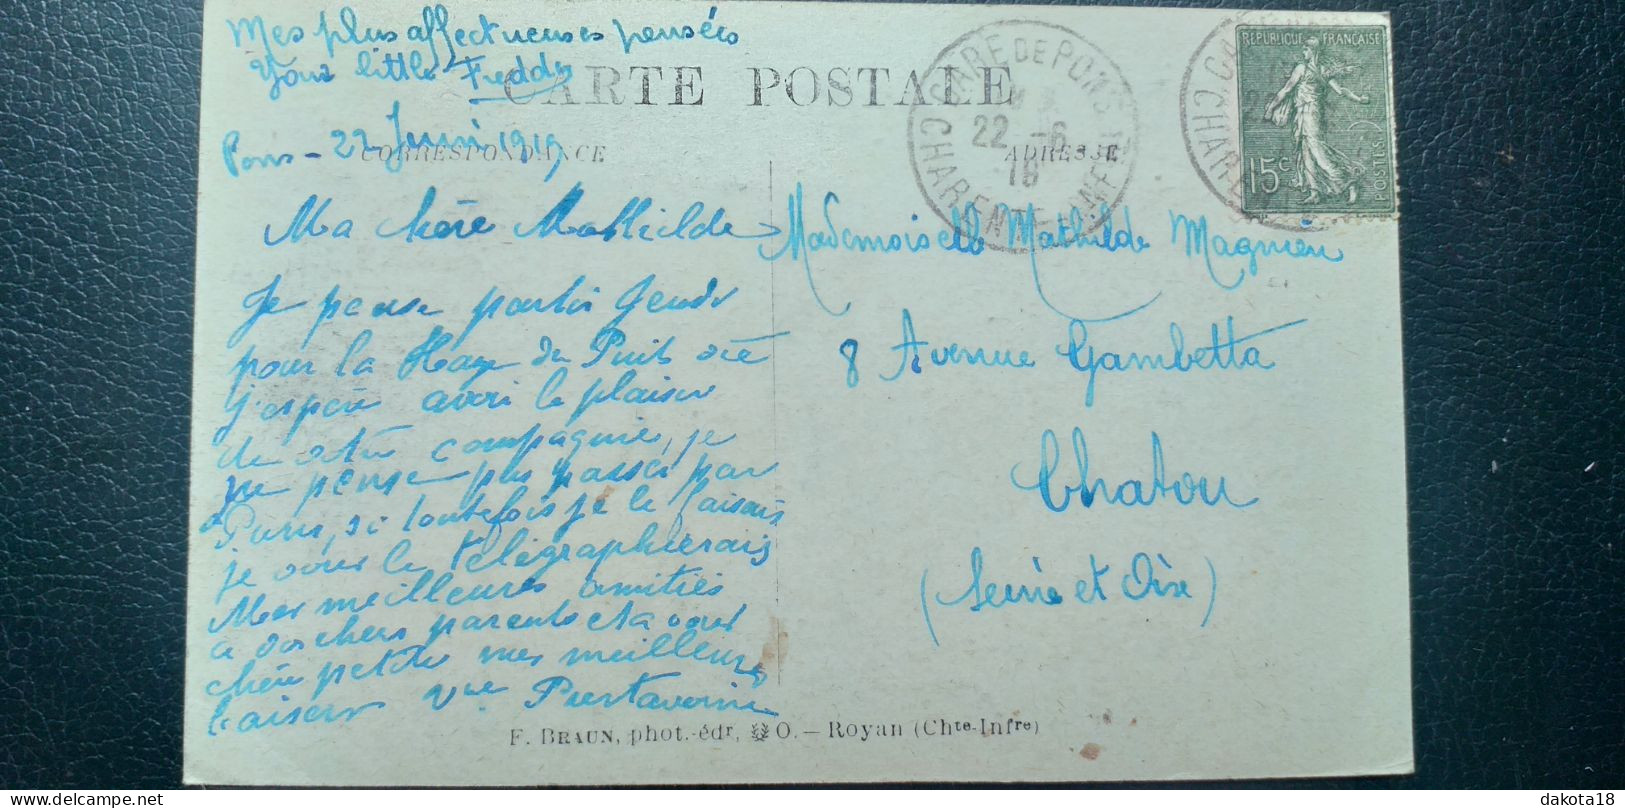 Mes plus affectueuses pensées
Your little Freddy
CARTE POSTALE
Pons - 22 Juin 1919
CORRESPONDANCE
Ma chère Mathilde
Je pense partir Jeudi
pour la Haye du Puits où
j'espère avoir le plaisir
de votre compagnie, je
ne pense pas passer par
Paris, si toutefois je le faisais
je vous le télégraphierais
Mes meilleures amitiés
à vos chers parents et à vous
chère petite mes meilleurs
baisers Vve
ADRESSE
Mademoiselle Mathilde Magnien
8 Avenue Gambetta
Chatou
(Seine et Oise)
GARE DE PONS
22 -6
19
CHARENTE INFRE
REPUBLIQUE FRANÇAISE
15c
POSTES
F. BRAUN, phot.-édr, O. - Royan (Chte-Infre)
dakota18